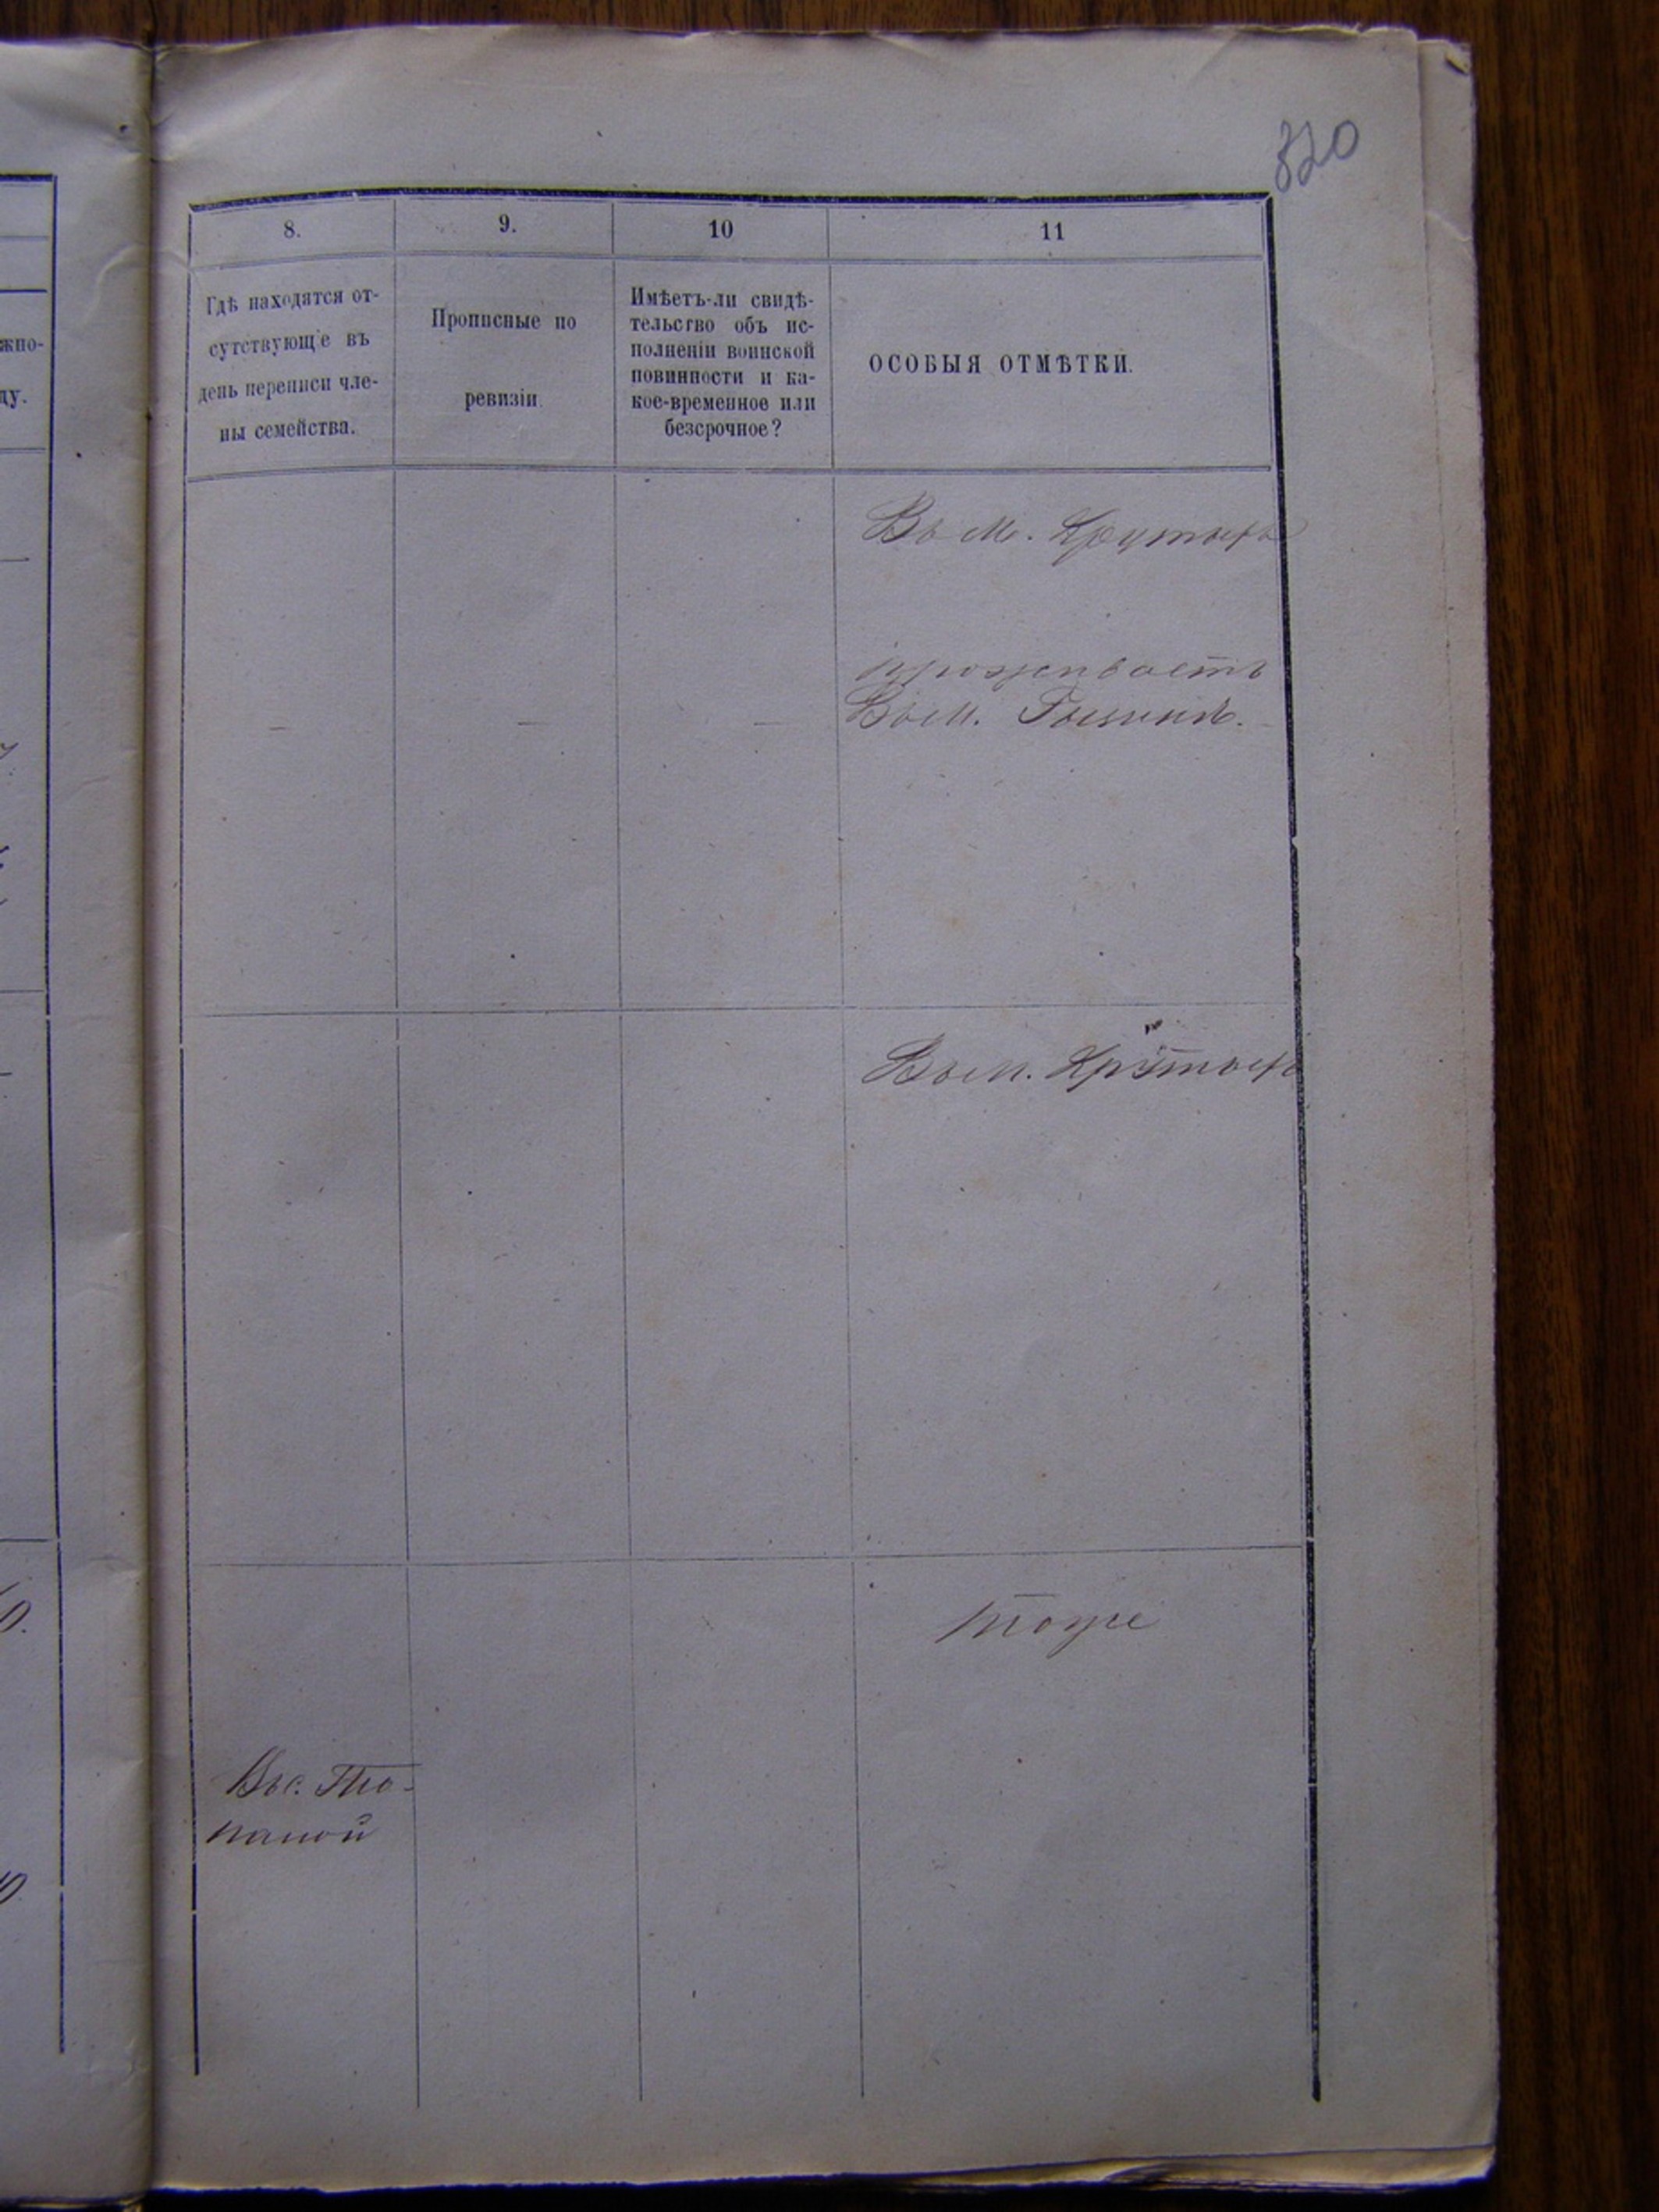 820
жно-
ду.
8.
9.
10
11
Гдѣ находятся от-
сутствующіе въ
день переписи чле-
ны семейства.
Прописные по
ревизіи.
Имѣетъ-ли свидѣ-
тельство объ ис-
полненіи воинской
повинности и ка-
кое-временное или
безсрочное?
ОСОБЫЯ ОТМѢТКИ.
Въ м. Крутыхъ
проживаетъ
Въ м.
Въ м. Крутыхъ
тоже
Въ с. То-
полной